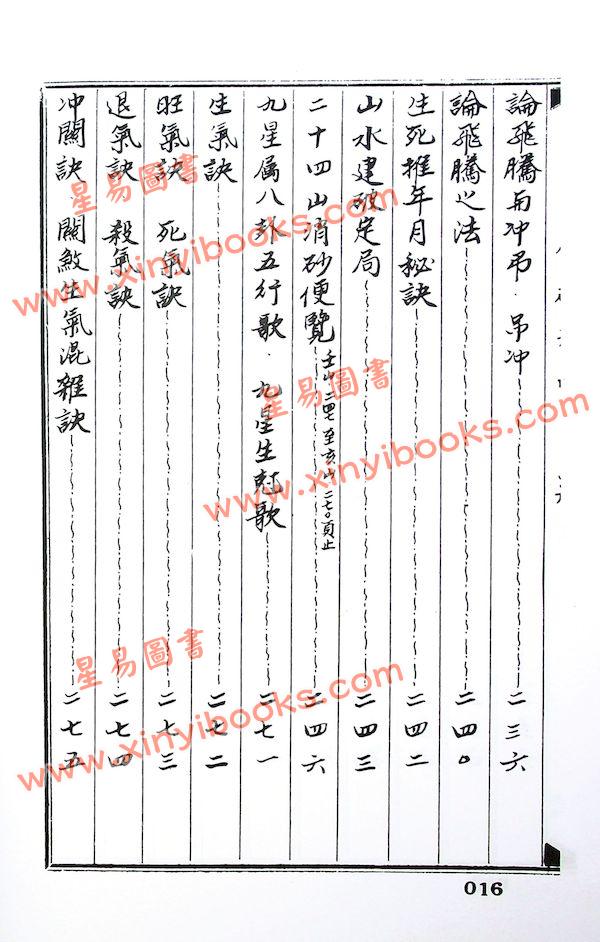 論飛騰而冲弔·吊冲 二三六
論飛騰之法 二四〇
生死推年月秘訣 二四二
山水建破定局 二四三
二十四山消砂便覽 壬山二四七至亥山二七〇頁止 二四六
九星属八卦五行歌·九星生尅歌 二七一
生氣訣 二七二
旺氣訣 死氣訣 二七三
退氣訣 殺氣訣 二七四
冲關訣 關煞生氣混雜訣 二七五
016
星易圖書
www.xinyibooks.com
星易圖書
www.xinyibooks.com
星易圖書
www.xinyibooks.com